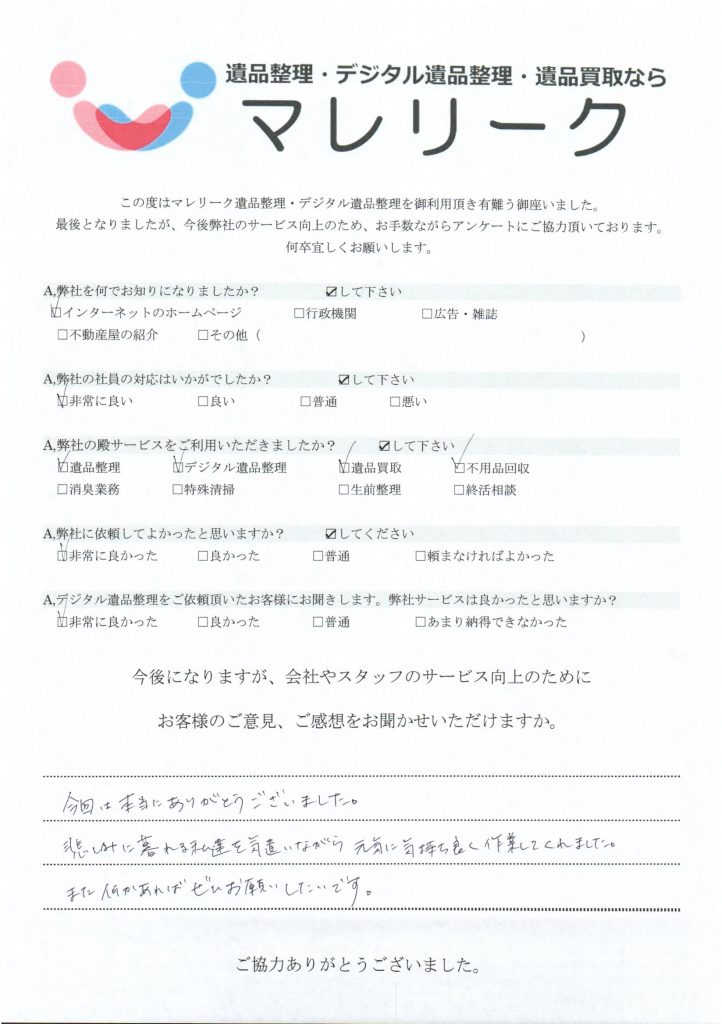 遺品整理・デジタル遺品整理・遺品買取なら
マレリーク
この度はマレリーク遺品整理・デジタル遺品整理を御利用頂き有難う御座いました。
最後となりましたが、今後弊社のサービス向上のため、お手数ながらアンケートにご協力頂いております。
何卒宜しくお願いします。
A,弊社を何でお知りになりましたか? ☑して下さい
☑インターネットのホームページ □行政機関 □広告・雑誌
□不動産屋の紹介 □その他（ ）
A,弊社の社員の対応はいかがでしたか? ☑して下さい
☑非常に良い □良い □普通 □悪い
A,弊社の殿サービスをご利用いただきましたか? ☑して下さい
☑遺品整理 ☑デジタル遺品整理 ☑遺品買取 ☑不用品回収
□消臭業務 □特殊清掃 □生前整理 □終活相談
A,弊社に依頼してよかったと思いますか? ☑してください
☑非常に良かった □良かった □普通 □頼まなければよかった
A,デジタル遺品整理をご依頼頂いたお客様にお聞きします。弊社サービスは良かったと思いますか?
☑非常に良かった □良かった □普通 □あまり納得できなかった
今後になりますが、会社やスタッフのサービス向上のために
お客様のご意見、ご感想をお聞かせいただけますか。
今回は本当にありがとうございました。
悲しみに暮れる私達を気遣いながら 元気に気持ち良く作業してくれました。
また何かあればぜひお願いしたいです。
ご協力ありがとうございました。